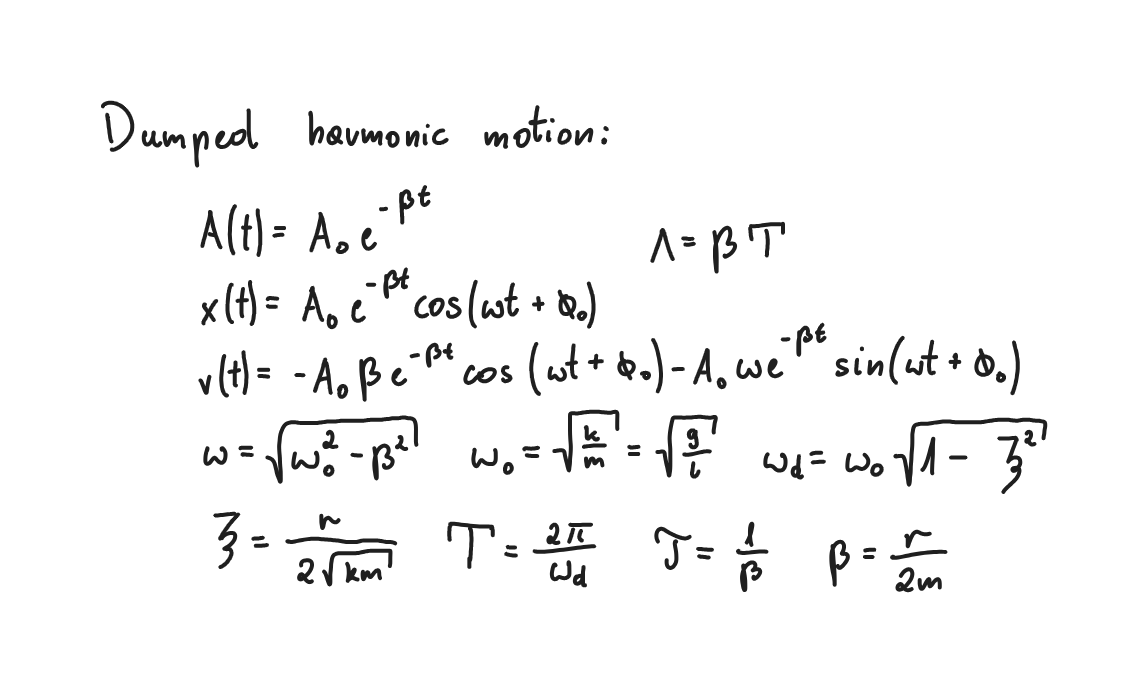 Dumped harmonic motion:
A(t) = A₀ e^{-βt} Λ = β T
x(t) = A₀ e^{-βt} cos(ωt + ϕ₀)
v(t) = -A₀ β e^{-βt} cos (ωt + ϕ₀) - A₀ ω e^{-βt} sin(ωt + ϕ₀)
ω = √(ω₀² - β²) ω₀ = √(k/m) = √(g/l) ω_d = ω₀ √(1 - ξ²)
ξ = r/(2√(km)) T = 2π/ω_d τ = 1/β β = r/(2m)